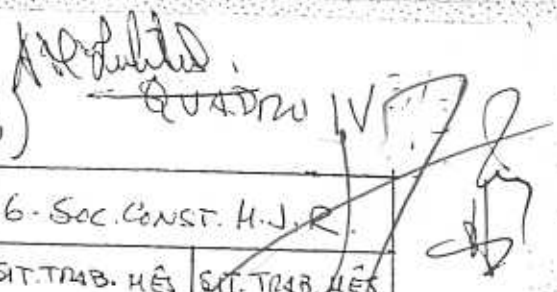 QUADRO IV
6 - SOC. CONST. H. J. R.
SIT. TRAB. MÊS SIT. TRAB MÊS